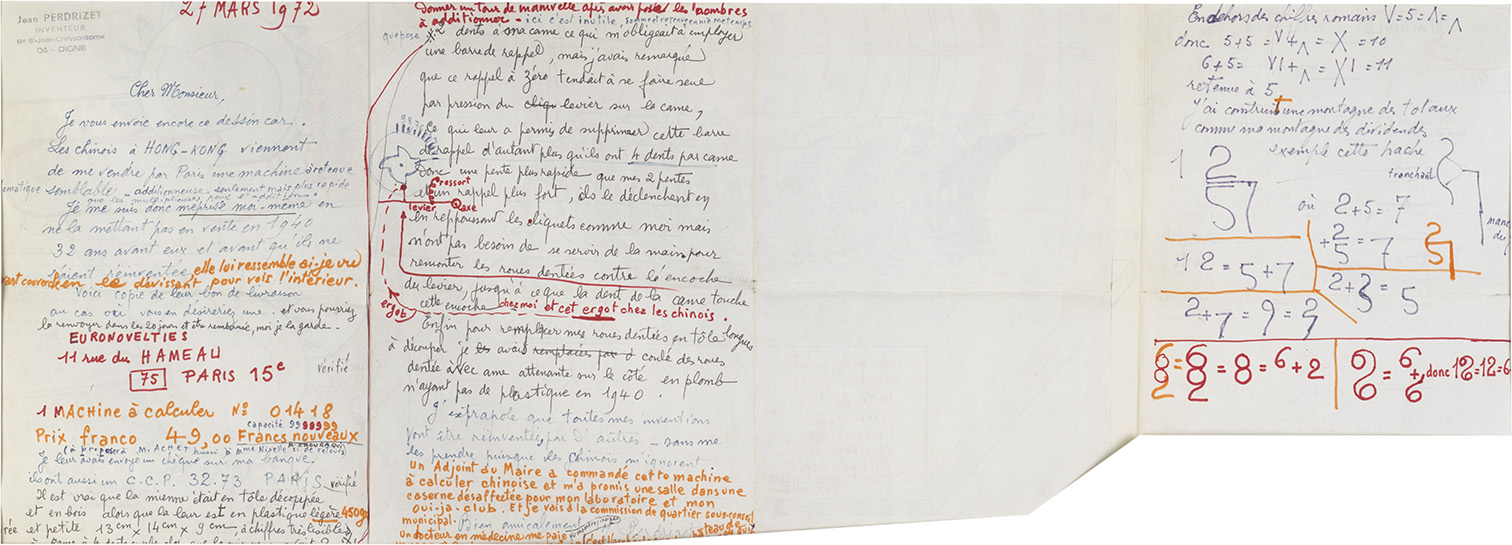 Jean PERDRIZET
INVENTEUR
Bd St-Jean-Chrysostome
04 - DIGNE
27 MARS 1972
Cher Monsieur,
Je vous envoie encore ce dessin car.
Les chinois à HONG-KONG viennent
de me vendre par Paris une machine à retenue
semblable - additionneuse seulement mais plus rapide
que les multiplieuses pour l'addition.
Je me suis donc méprisé moi-même en
ne la mettant pas en vente en 1940
32 ans avant eux et avant qu'ils ne
l'aient réinventée elle lui ressemble ai-je vu
en le dévissant pour voir l'intérieur.
Voici copie de leur bon de livraison
au cas où vous en désireriez une. et vous pourriez
la renvoyer dans les 20 jours et être remboursé, moi je la garde -
EURONOVELTIES
11 rue du HAMEAU
75 PARIS 15e vérifié
1 MACHINE à calculer No 01418
capacité 99999999
Prix franco 49,00 Francs nouveaux
(à proposer à M. ACHET aussi à Mme
Je leur avais envoyé un chèque sur ma banque
ils ont aussi un C.C.P. 32.73 PARIS vérifié
Il est vrai que la mienne était en tôle découpée
et en bois alors que la leur est en plastique légère 450g
et petite 13cm x 14cm x 9cm, à chiffres très lisibles
Donner un tour de manivelle après avoir posé les nombres
à additionner - ici c'est inutile, somme et retenue en même temps
que pose
2 dents à ma came ce qui m'obligeait à employer
une barre de rappel, mais j'avais remarqué
que ce rappel à zéro tendait à se faire seul
par pression du cliqu levier sur la came,
ce qui leur a permis de supprimer cette barre
de rappel d'autant plus qu'ils ont 4 dents par came
Donc une pente plus rapide que mes 2 pentes
et un rappel plus fort, ils le déclenchent en
ressort
levier axe
en repoussant les cliquets comme moi mais
n'ont pas besoin de se servir de la main pour
remonter les roues dentées contre l'encoche
du levier, jusqu'à ce que la dent de la came touche
cette encoche chez moi et cet ergot chez les chinois.
ergot
Enfin pour remplacer mes roues dentées en tôle longues
à découper je les avais remplacées par d coulé des roues
dentée avec came attenante sur le côté en plomb
n'ayant pas de plastique en 1940.
J'extrapole que toutes mes inventions
vont être réinventées par d'autres - sans me
les prendre puisque les chinois m'ignorent
un Adjoint du Maire a commandé cette machine
à calculer chinoise et m'a promis une salle dans une
caserne désaffectée pour mon laboratoire et mon
oui-ja-club. Et je vais à la commission de quartier sous-conseil
municipal. Bien amicalement
un docteur en médecine me paie
En dehors des chiffres romains V = 5 = Λ = Λ
donc 5+5 = V+Λ = X = 10
6+5 = VI+Λ = XI = 11
retenue à 5
J'ai construit une montagne des totaux
comme ma montagne des dividendes
exemple cette hache
tranchant
1 2
57
où 2+5 = 7
+2
5 = 7
2
5
12 = 5+7
2+3 = 5
2+7 = 9 = 2
7
8 = 8 = 8 = 6+2
8 = 6+6 donc 12 = 12 = 6